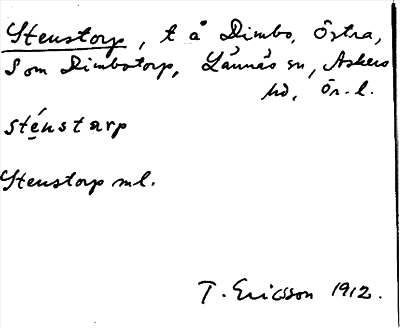 Stenstorp, t å Dimbo, Östra,
Som Dimbotorp, Lännäs sn, Askers
hd, Ör. l.
sténstarp
Stenstorp ml.
T. Ericsson 1912.